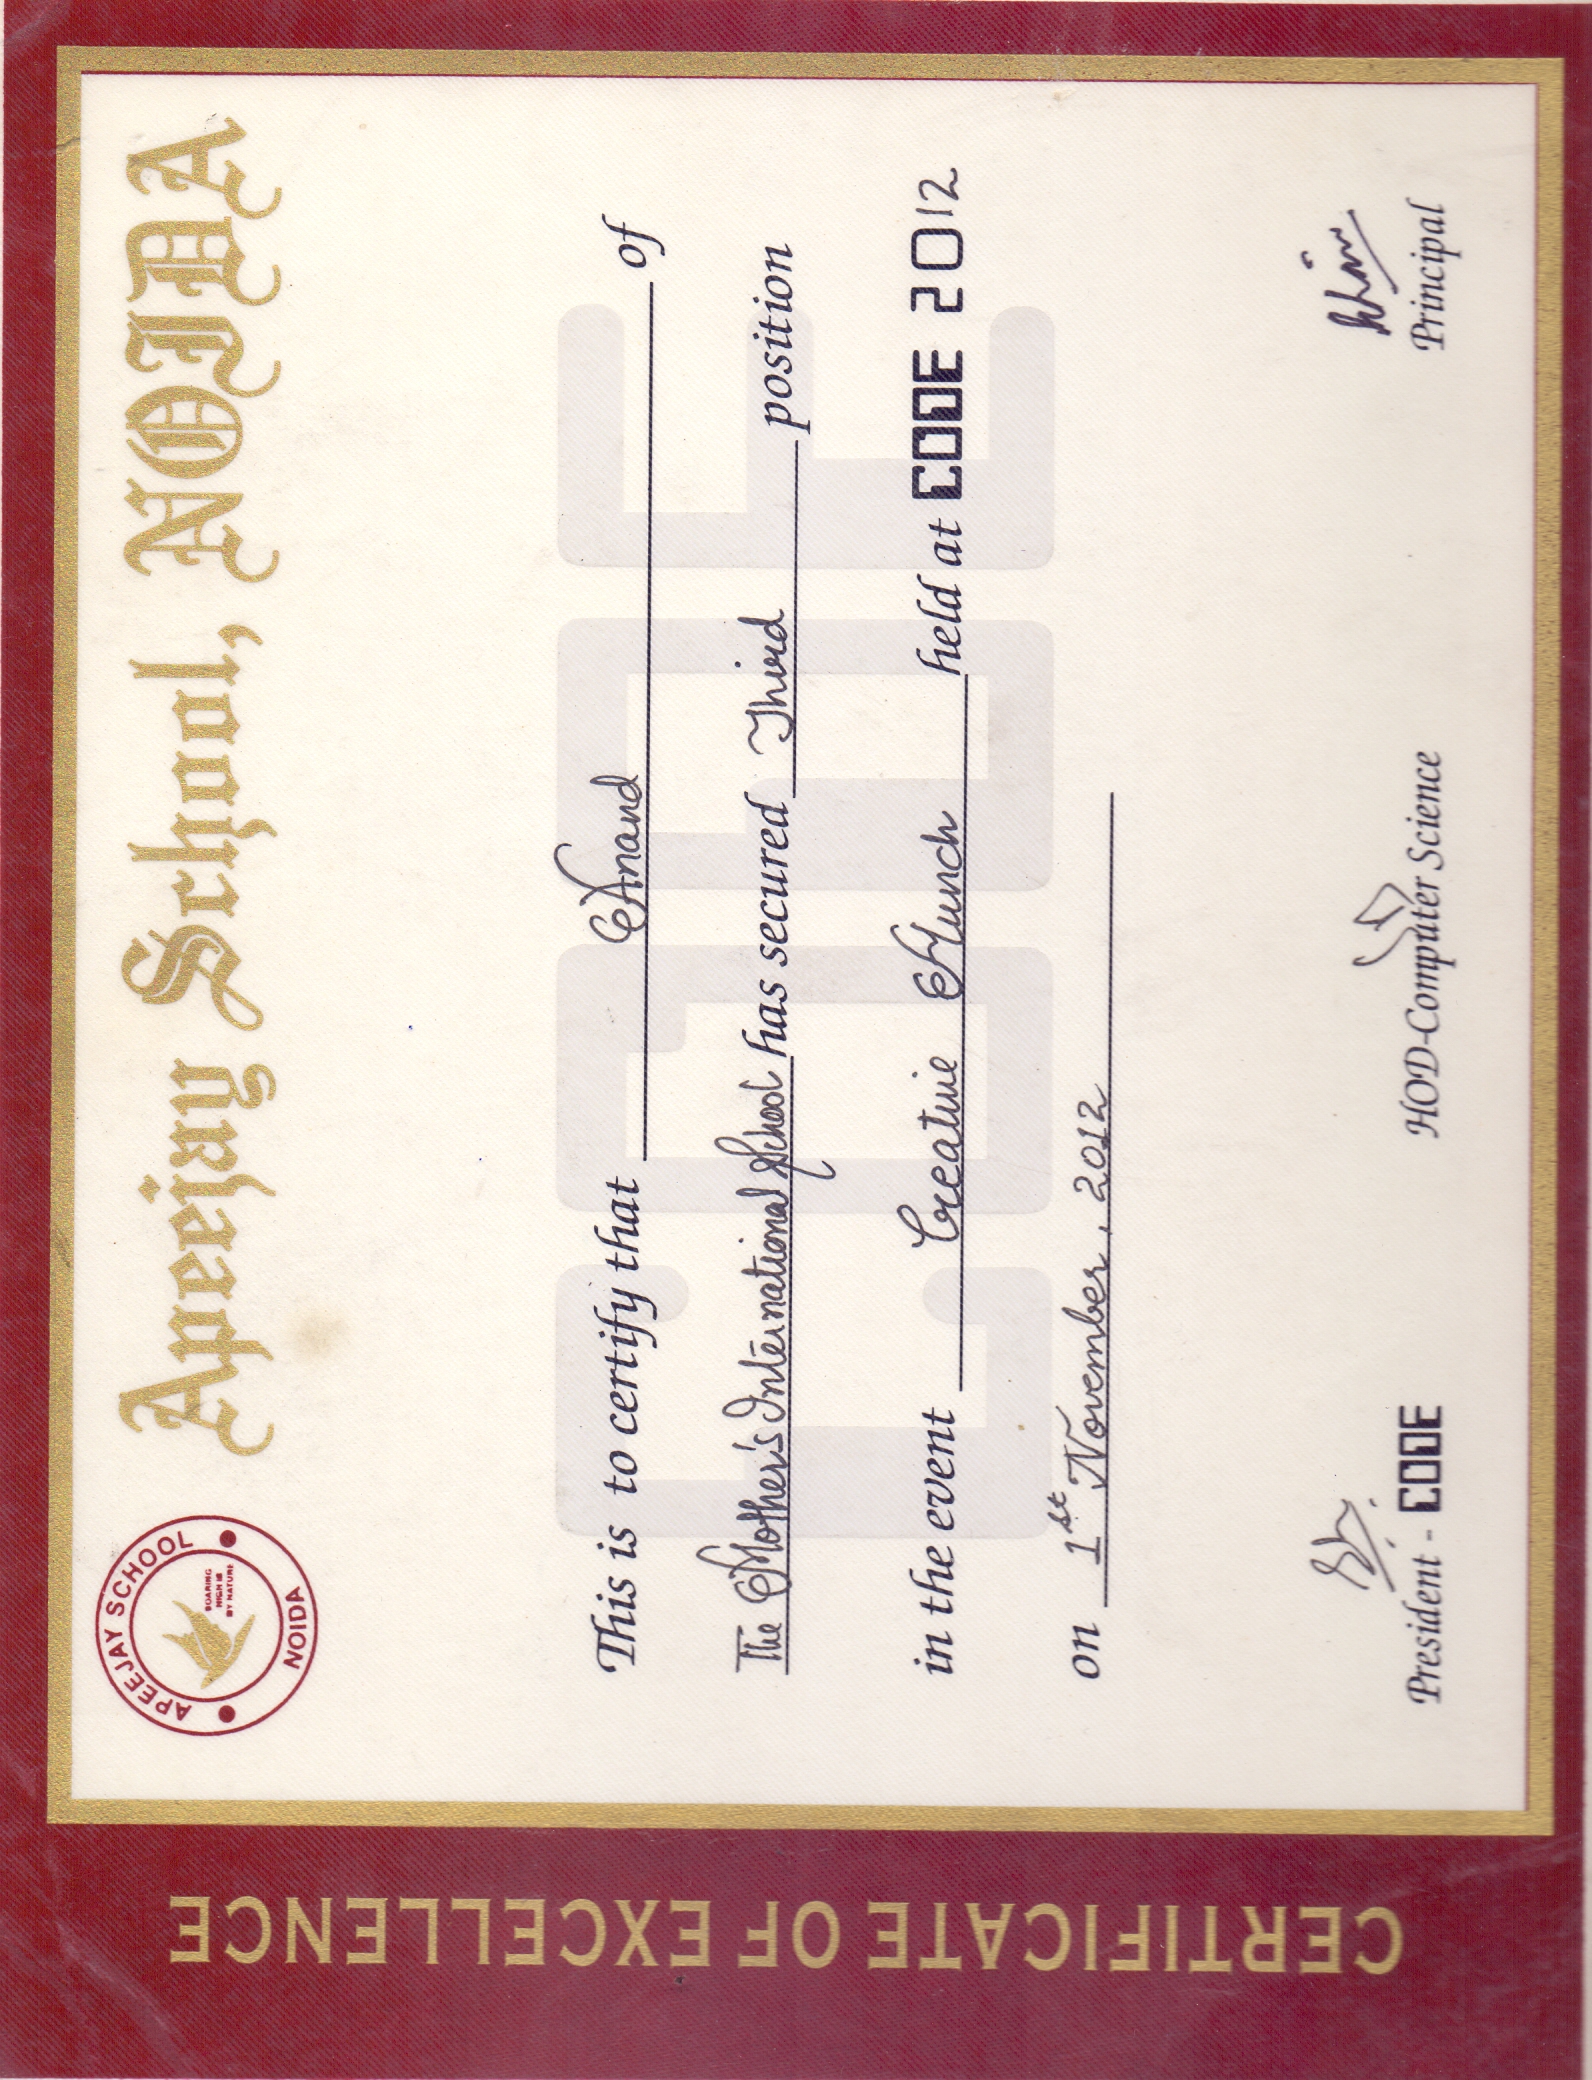 CERTIFICATE OF EXCELLENCE
APEEJAY SCHOOL
SOARING
HIGH IS
BY NATURE
NOIDA
Apeejay School, NOIDA
This is to certify that Anand of
The Mother's International School has secured Third position
in the event Creative Hunch held at CODE 2012
on 1st November, 2012
President - CODE
HOD-Computer Science
Principal